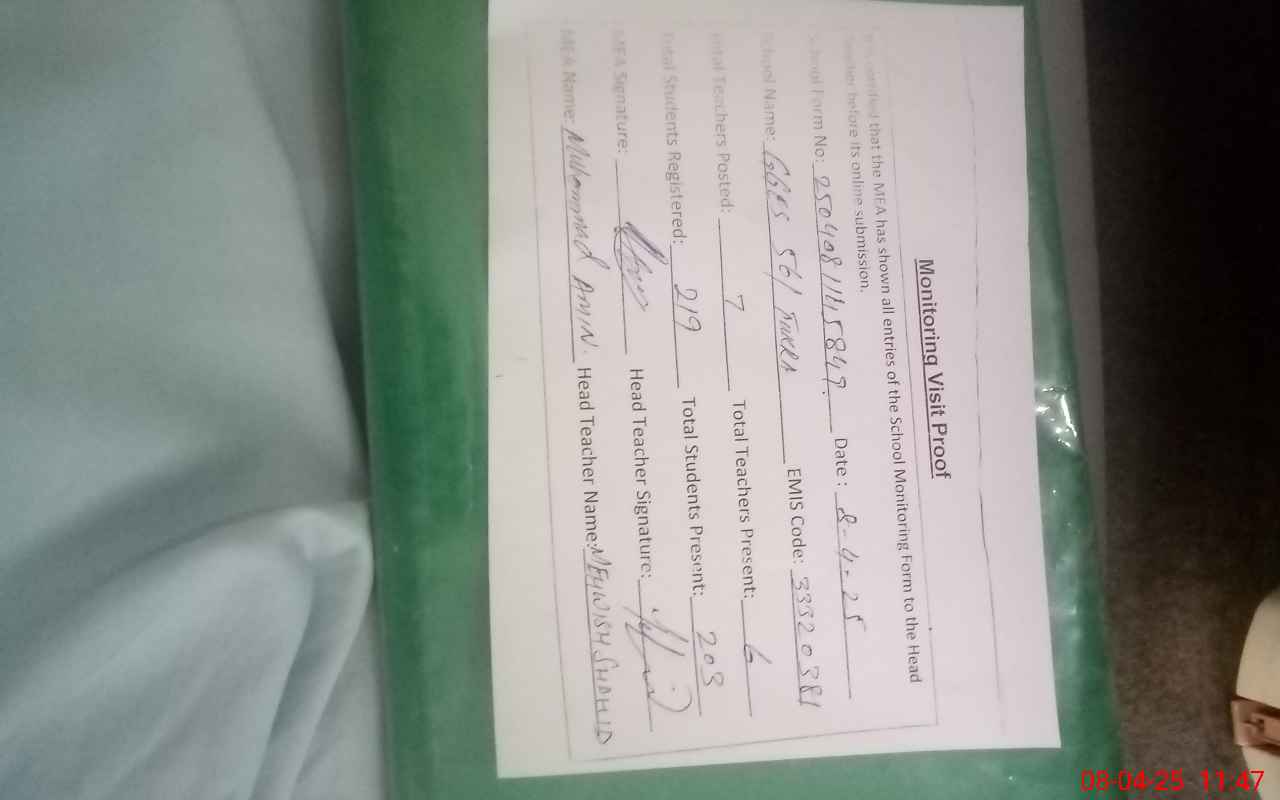 Monitoring Visit Proof
It is certified that the MEA has shown all entries of the School Monitoring Form to the Head
Teacher before its online submission.
School Form No: 250408114584 Date: 8-4-25
School Name: 561 EMIS Code: 33320381
Total Teachers Posted: 7 Total Teachers Present: 6
Total Students Registered: 219 Total Students Present: 203
MEA Signature: Head Teacher Signature:
MEA Name: Muhammad AMIN. Head Teacher Name: MEHWISH SHAHID
08-04-25 11:47